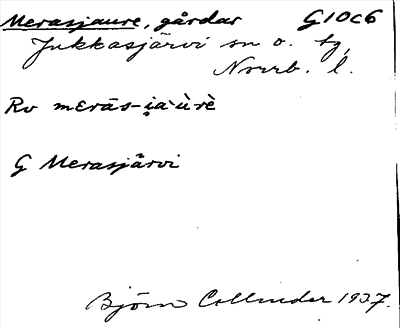 Merasjaure, gårdar G10c6
Jukkasjärvi sn o. tg,
Norrb. l.
Rv merās-i̯a·ùrè
G Merasjärvi
Björn Collinder 1937.